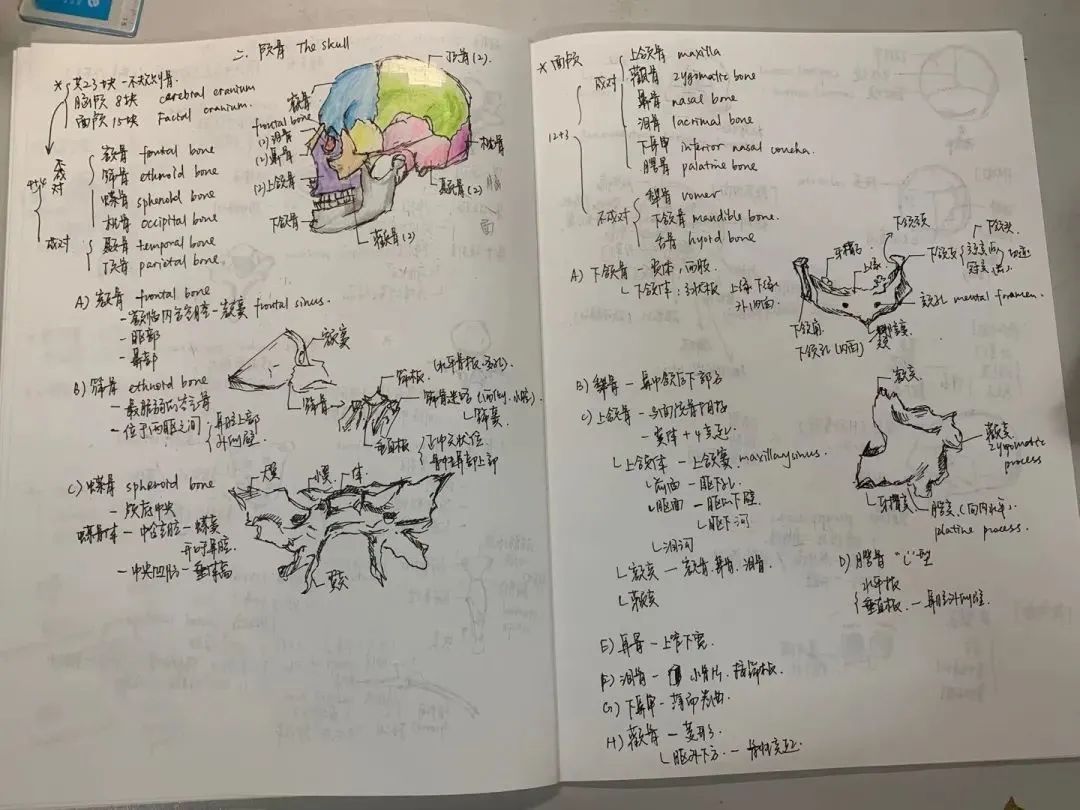 二、颅骨 The skull
* 共23块 - 不规则骨.
脑颅 8块 cerebral cranium
面颅 15块 Facial cranium.
4+4
不成对
额骨 frontal bone
筛骨 ethnoid bone
蝶骨 sphenoid bone
枕骨 occipital bone
成对
颞骨 temporal bone
顶骨 parietal bone.
顶骨(2).
额骨
frontal bone
(2)泪骨
(2)鼻骨
(2)上颌骨
下颌骨
枕骨
颞骨(2)
颧骨(2)
A) 额骨 frontal bone
- 额窦 frontal sinus.
- 眶部
- 鼻部
额窦
B) 筛骨 ethnoid bone
- 最脆弱的含气骨
- 位于两眶之间
鼻腔上部
外侧壁
筛骨
筛板 (水平骨板·多孔).
筛骨迷路
筛窦
垂直板
正中矢状位
C) 蝶骨 sphenoid bone
- 颅底中央
蝶骨体 - 中含气腔 - 蝶窦
开口鼻腔.
- 中央凹陷 - 垂体窝
大翼
小翼
体
翼突
* 面颅
12+3
成对
上颌骨 maxilla
颧骨 zygomatic bone
鼻骨 nasal bone
泪骨 lacrimal bone
下鼻甲 inferior nasal concha.
腭骨 palatine bone
不成对
犁骨 vomer
下颌骨 mandible bone.
舌骨 hyord bone
A) 下颌骨 - 一体, 两支
下颌体: 弓状板 上缘 下缘
外内面
牙槽弓
上缘
下颌颈
下颌头
下颌支
冠突
颏孔 mental foramen.
下颌角
下颌孔(内面)
B) 犁骨 - 鼻中隔后下部分
C) 上颌骨 - 与面颅骨相接
- 一体 + 4突起
上颌体 - 上颌窦 maxillary sinus.
前面 - 眶下孔
眶面 - 眶下壁
眶下沟
泪沟
额突 - 额骨.鼻骨.泪骨.
颧突
额突
颧突
zygomatic
process
牙槽突
腭突 (向内水平).
platine process.
D) 腭骨 "L"型
水平板
垂直板. - 鼻腔外侧壁.
E) 鼻骨 - 上窄下宽.
F) 泪骨 - 小骨片. 接筛板.
G) 下鼻甲 - 薄而卷曲.
H) 颧骨 - 菱形
眶外下方. - 骨性突起